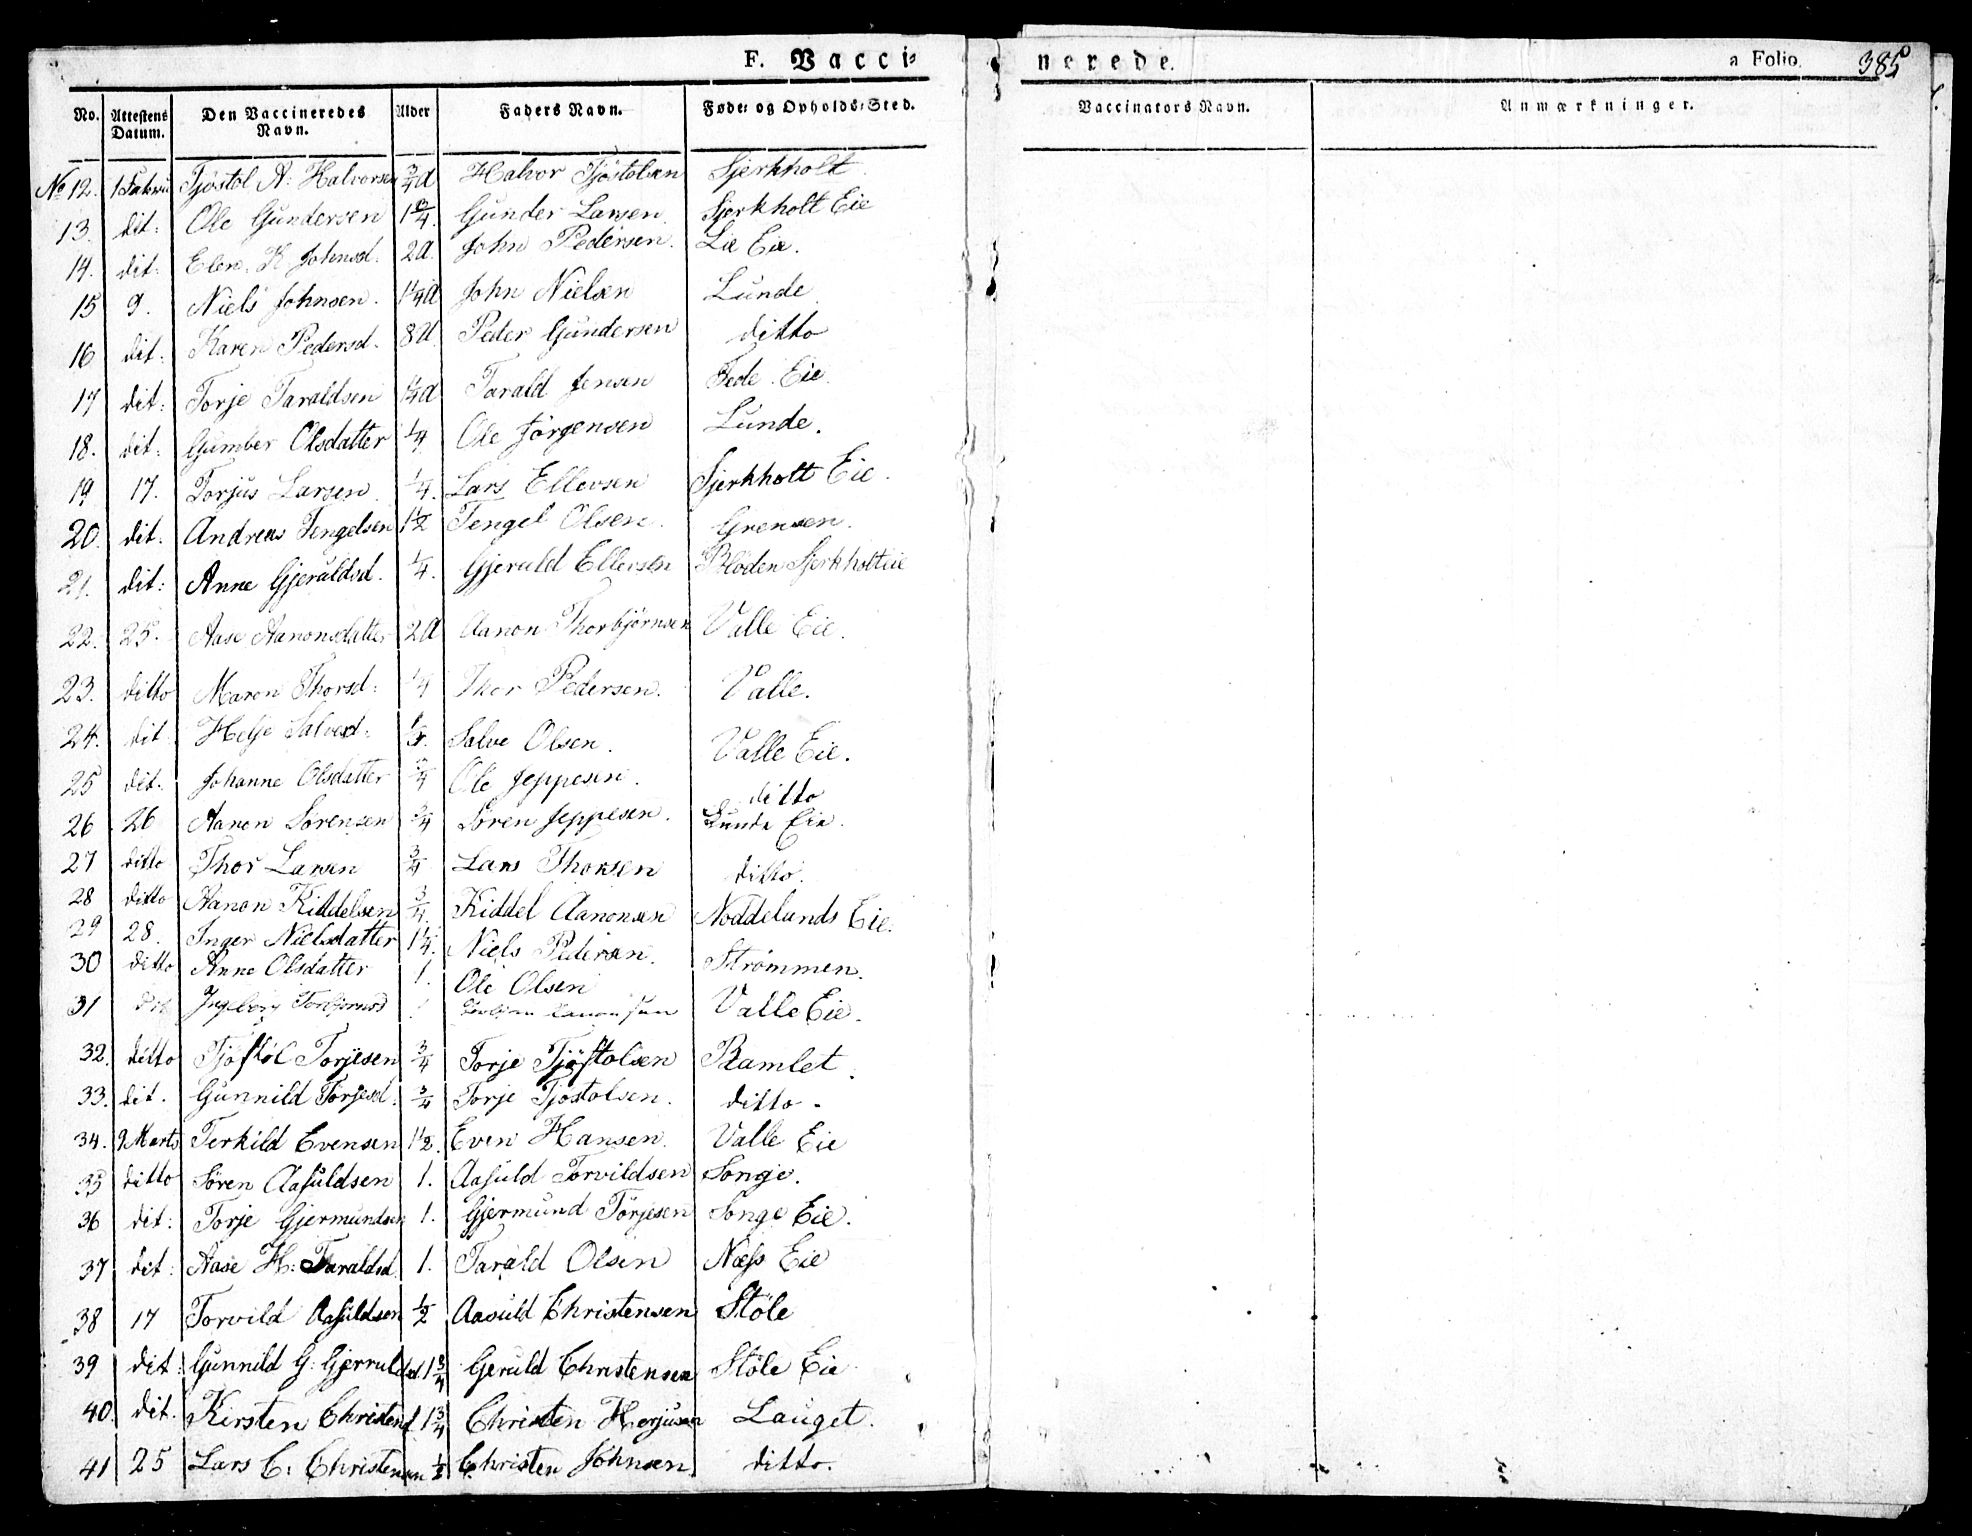 F. Vacci-
nerede.
a Folio. 385
No. Attestens Datum. Den Vaccineredes Navn. Alder Faders Navn. Føde- og Opholds-Sted. Vaccinators Navn. Anmærkninger.
No 12. 1 Tjöstol A: Halvorsen 3/4 a Halvor Tjöstolsen Sjerkholt
13. dit: Ole Gundersen 1 Gunder Larsen Sjerkholt Eie
14. dit: Elen K Johnsd. 2a. John Pedersen. Lie Eie.
15 9. Niels Johnsen. 1 1/4 a John Nielsen Lunde
16 dit: Karen Pedersd. 8a Peder Gundersen ditto
17 dit: Torje Taraldsen 1/4 a Tarald Jensen Fede Eie
18. dit: Gumber Olsdatter 1/4 Ole Jörgensen Lunde.
19 17. Torjus Larsen 1/4. Lars Ellevsen Sjerkholt Eie.
20. dit. Andreas Tengelsen 1 1/2 Tengel Olsen. Grensen.
21. dit: Anne Gjeruldsd. 1/4. Gjeruld Ellersen Blöden Sjerkholteie
22. 25. Aase Aanonsdatter 2a Aanon Thorbjörnsen Valle Eie.
23. ditto Maren Thorsd: 1/4 Thor Pedersen. Valle.
24. dit Helje Salvesd: Salve Olsen. Valle Eie.
25 dit. Johanne Olsdatter 3/4 Ole Jeppesen. ditto
26 26 Aanon Sörensen 3/4 Sören Jeppesen. Lunde Eie.
27 ditto Thor Larsen 3/4 Lars Thorsen ditto.
28 ditto Aanon Kiddelsen 3/4. Kiddel Aanonsen Noddelunds Eie.
29 28. Inger Nielsdatter 1 1/4. Niels Pedersen. Strömmen.
30 ditto Anne Olsdatter 1. Ole Olsen Valle Eie.
31 dit Ingeborg Torbjörnsd
32. ditto Tjöstöl Torjesen 3/4 Torje Tjöstolsen Ramlet.
33. dit. Gunnild Torjesd. 3/4 Torje Tjöstolsen. ditto.
34. 9 Marts Terkild Evensen 1 1/2. Even Hansen. Valle Eie
35 ditto Sören Aasuldsen 1. Aasuld Torvildsen Songe.
36 dit: Torje Gjermundsen 1. Gjermund Törjesen Songe Eie.
37 dit: Aase H: Taraldsd. 1. Tarald Olsen Næss Eie
38 17 Torvild Aasuldsen 1/2 Aasuld Christensen Stöle
39 dit: Gunnild G: Gjerruldsd. 1 3/4 Geruld Christensen Stöle Eie
40. dit. Kirsten Christensd. 1 3/4 Christen Herjusen Lauget.
41 25 Lars C: Christensen 1/2 Christen Johnsen. ditto.